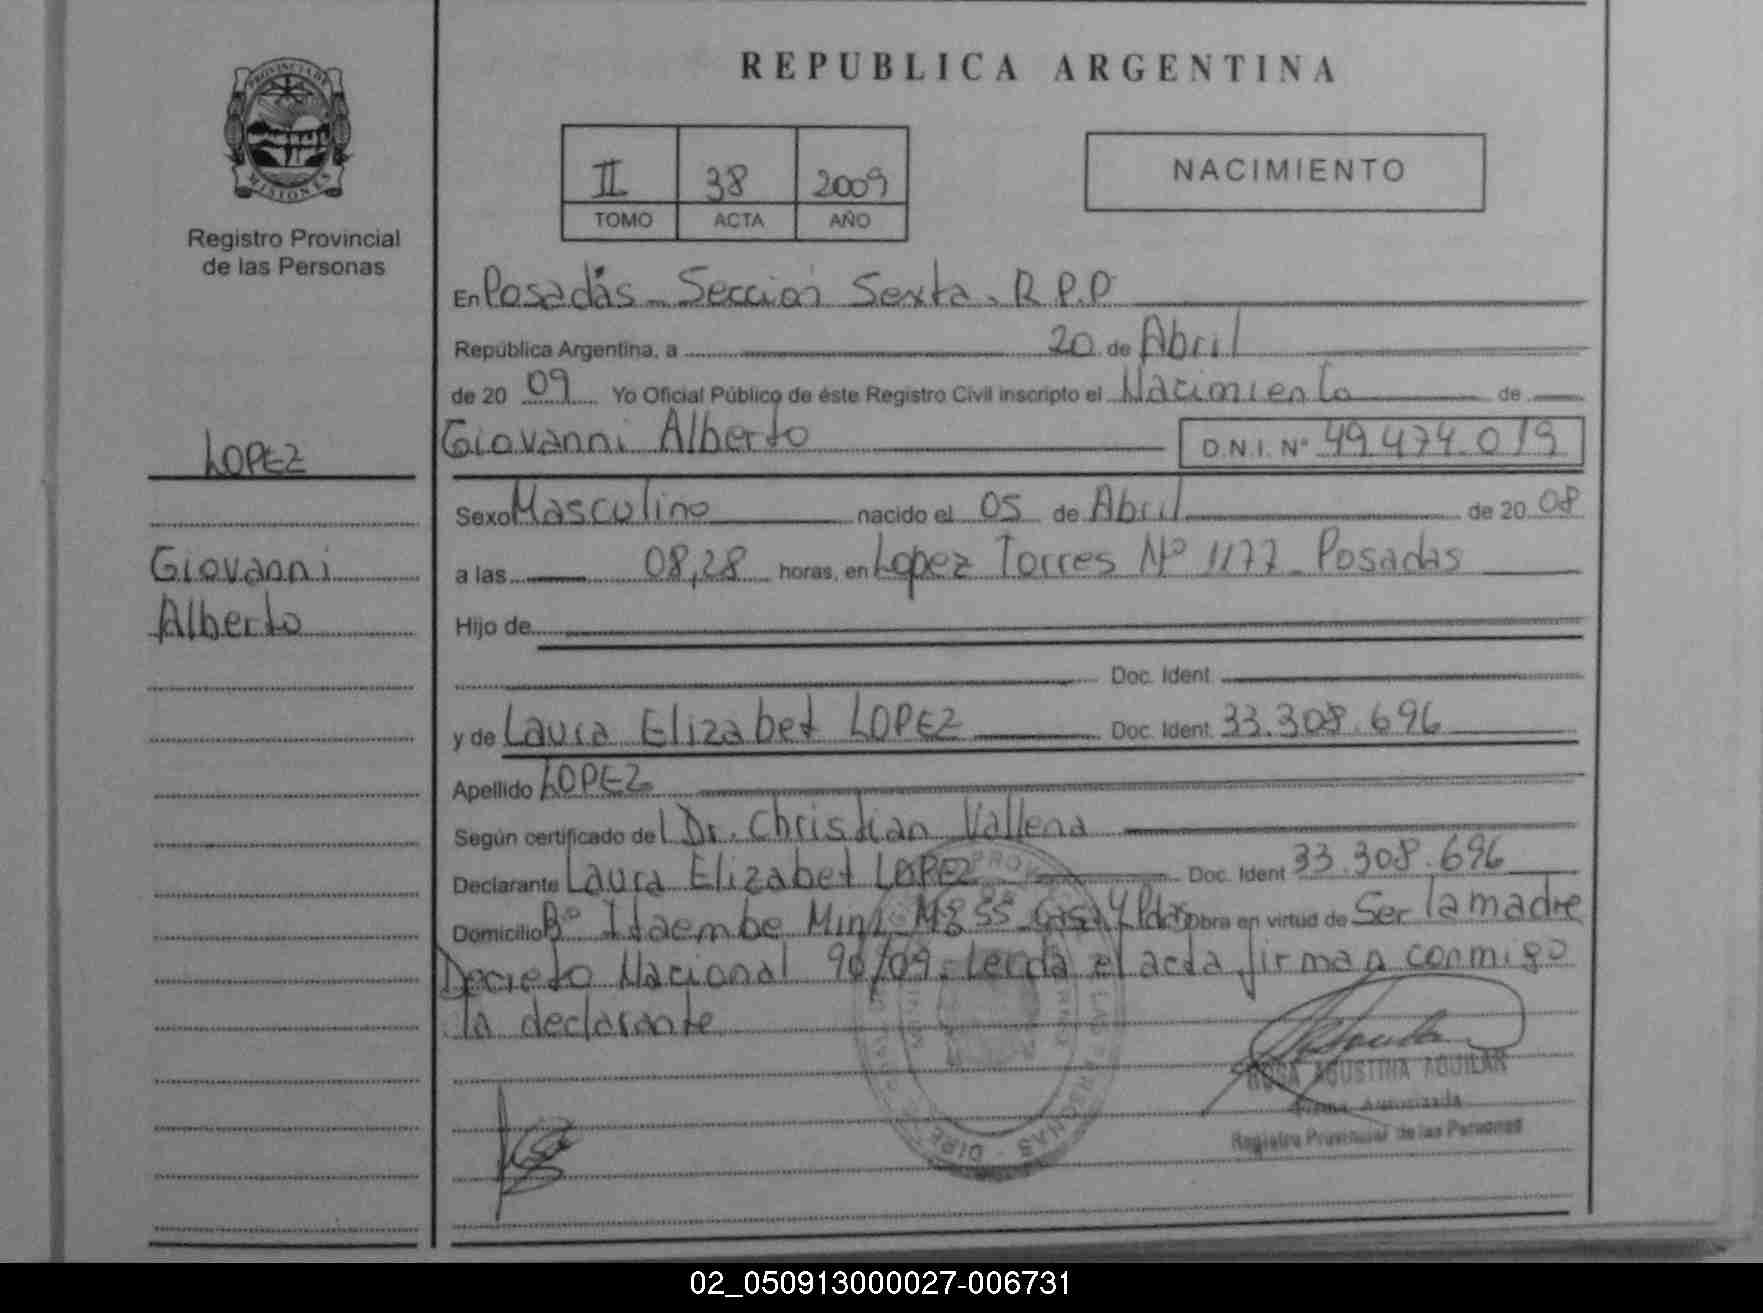 REPUBLICA ARGENTINA
PROVINCIA DE
MISIONES
Registro Provincial
de las Personas
II 38 2009
TOMO ACTA AÑO
NACIMIENTO
En Posadas Sección Sexta. R.P.P
República Argentina, a 20 de Abril
de 20 09 Yo Oficial Público de éste Registro Civil inscripto el Nacimiento de
Giovanni Alberto D.N.I. Nº 49.474.019
LOPEZ
Giovanni
Alberto
Sexo Masculino nacido el 05 de Abril de 20 08
a las 08,28 horas, en Lopez Torres Nº 1177 Posadas
Hijo de
Doc. Ident.
y de Laura Elizabet LOPEZ Doc. Ident. 33.308.696
Apellido LOPEZ
Según certificado del Dr. Christian Vallena
Declarante Laura Elizabet LOPEZ Doc. Ident 33.308.696
Domicilio Bº Itaembe Mini Obra en virtud de Ser la madre
Decreto Nacional 90/09. Leida el acta firman conmigo
la declarante
ROSA AGUSTINA AGUILAR
Firma Autorizada
Registro Provincial de las Personas
02_050913000027-006731